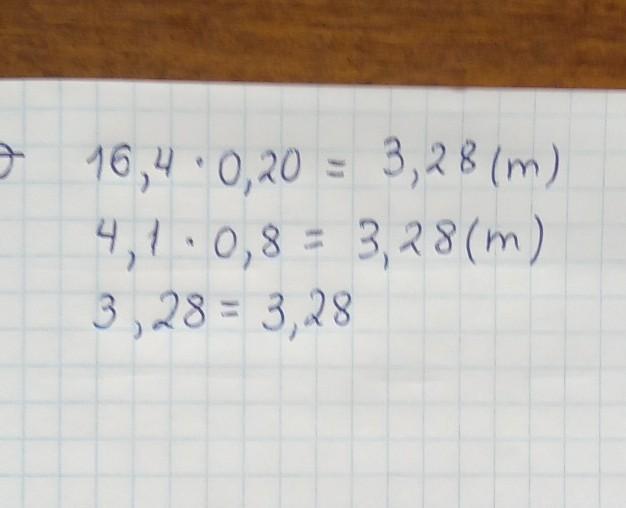 16,4 · 0,20 = 3,28 (m)
4,1 · 0,8 = 3,28 (m)
3,28 = 3,28